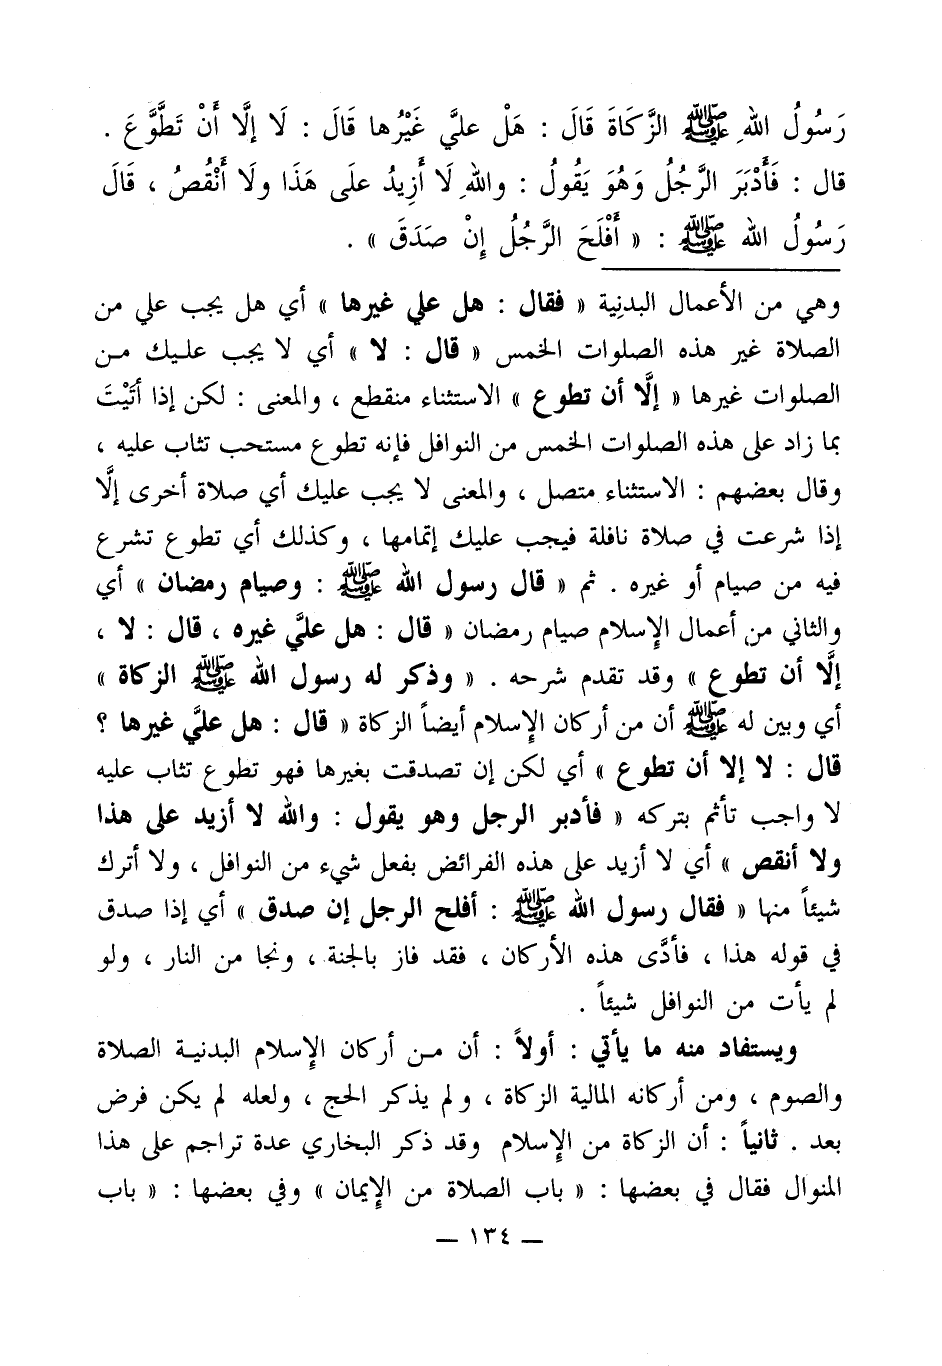 رَسُولُ اللهِ ﷺ الزَّكَاةَ قَالَ : هَلْ عليَّ غَيْرُها قَالَ : لَا إلَّا أَنْ تَطَّوَّعَ .
قال : فَأَدْبَرَ الرَّجُلُ وَهُوَ يَقُولُ : واللهِ لَا أَزِيدُ علَى هَذَا ولَا أَنْقُصُ ، قَالَ
رَسُولُ الله ﷺ : « أَفْلَحَ الرَّجُلُ إنْ صَدَقَ » .
وهي من الأعمال البدنِية « فقال : هل علي غيرها » أي هل يجب علي من
الصلاة غير هذه الصلوات الخمس « قال : لا » أي لا يجب عليك من
الصلوات غيرها « إلَّا أن تطوع » الاستثناء منقطع ، والمعنى : لكن إذا أتَيْتَ
بما زاد على هذه الصلوات الخمس من النوافل فإنه تطوع مستحب تثاب عليه ،
وقال بعضهم : الاستثناء متصل ، والمعنى لا يجب عليك أي صلاة أخرى إلَّا
إذا شرعت في صلاة نافلة فيجب عليك إتمامها ، وكذلك أي تطوع تشرع
فيه من صيام أو غيره . ثم « قال رسول الله ﷺ : وصيام رمضان » أي
والثاني من أعمال الإسلام صيام رمضان « قال : هل عليَّ غيره ، قال : لا ،
إلَّا أن تطوع » وقد تقدم شرحه . « وذكر له رسول الله ﷺ الزكاة »
أي وبين له ﷺ أن من أركان الإسلام أيضاً الزكاة « قال : هل عليَّ غيرها ؟
قال : لا إلا أن تطوع » أي لكن إن تصدقت بغيرها فهو تطوع تثاب عليه
لا واجب تأثم بتركه « فأدبر الرجل وهو يقول : والله لا أزيد على هذا
ولا أنقص » أي لا أزيد على هذه الفرائض بفعل شيء من النوافل ، ولا أترك
شيئاً منها « فقال رسول الله ﷺ : أفلح الرجل إن صدق » أي إذا صدق
في قوله هذا ، فأدَّى هذه الأركان ، فقد فاز بالجنة ، ونجا من النار ، ولو
لم يأت من النوافل شيئاً .
ويستفاد منه ما يأتي : أولاً : أن من أركان الإسلام البدنية الصلاة
والصوم ، ومن أركانه المالية الزكاة ، ولم يذكر الحج ، ولعله لم يكن فرض
بعد . ثانياً : أن الزكاة من الإسلام وقد ذكر البخاري عدة تراجم على هذا
المنوال فقال في بعضها : « باب الصلاة من الإيمان » وفي بعضها : « باب
— ١٣٤ —